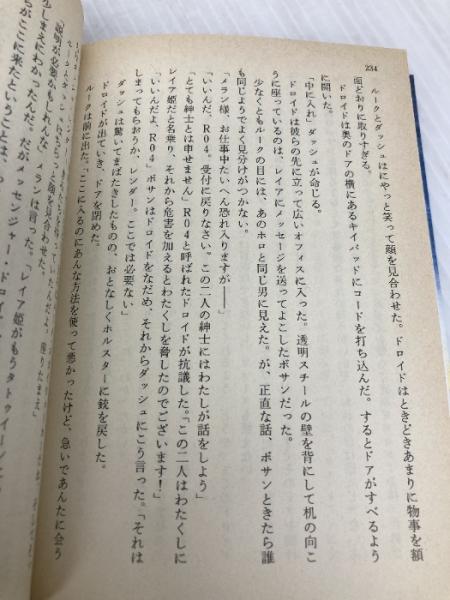 234
ルークとダッシュはにやっと笑って顔を見合わせた。ドロイドはときどきあまりに物事を額
面どおりに取りすぎる。
ドロイドは奥のドアの横にあるキイパッドにコードを打ち込んだ。するとドアがすべるよう
に開いた。
「中に入れ」ダッシュが命じる。
ドロイドは彼らの先に立って広いオフィスに入った。透明スチールの壁を背にして机の向こ
うに座っているのは、レイアにメッセージを送ってよこしたボサンだった。
少なくともルークの目には、あのホロと同じ男に見えた。が、正直な話、ボサンときたら誰
も同じようで見分けがつかない。
「メラン様、お仕事中たいへん恐れ入りますが――」
「いいんだ、R04。受付に戻りなさい。この二人の紳士にはわたしが話をしよう」
「とても紳士とは申せません」R04と呼ばれたドロイドが抗議した。「この二人はわたくしに
レイア姫だと名乗り、それから危害を加えるとわたくしを脅したのでございます！」
「いいんだよ、R04」ボサンはドロイドをなだめ、それからダッシュにこう言った。「それは
しまってもらおうか、レンダー。ここでは必要ない」
ダッシュは驚いてまばたきしたものの、おとなしくホルスターに銃を戻した。
ドロイドが出ていき、ドアを閉めた。
ルークは前に出た。「ここに入るのにあんな方法を使って悪かったけど、急いであんたに会う
を見合わせた。
「説明が必要かもしれんな」メランは言った。「レイア姫がもうタトゥイーンに
少しまえにわかったんだ。だがメッセンジャー・ドロイ
ちがここに来たということは、